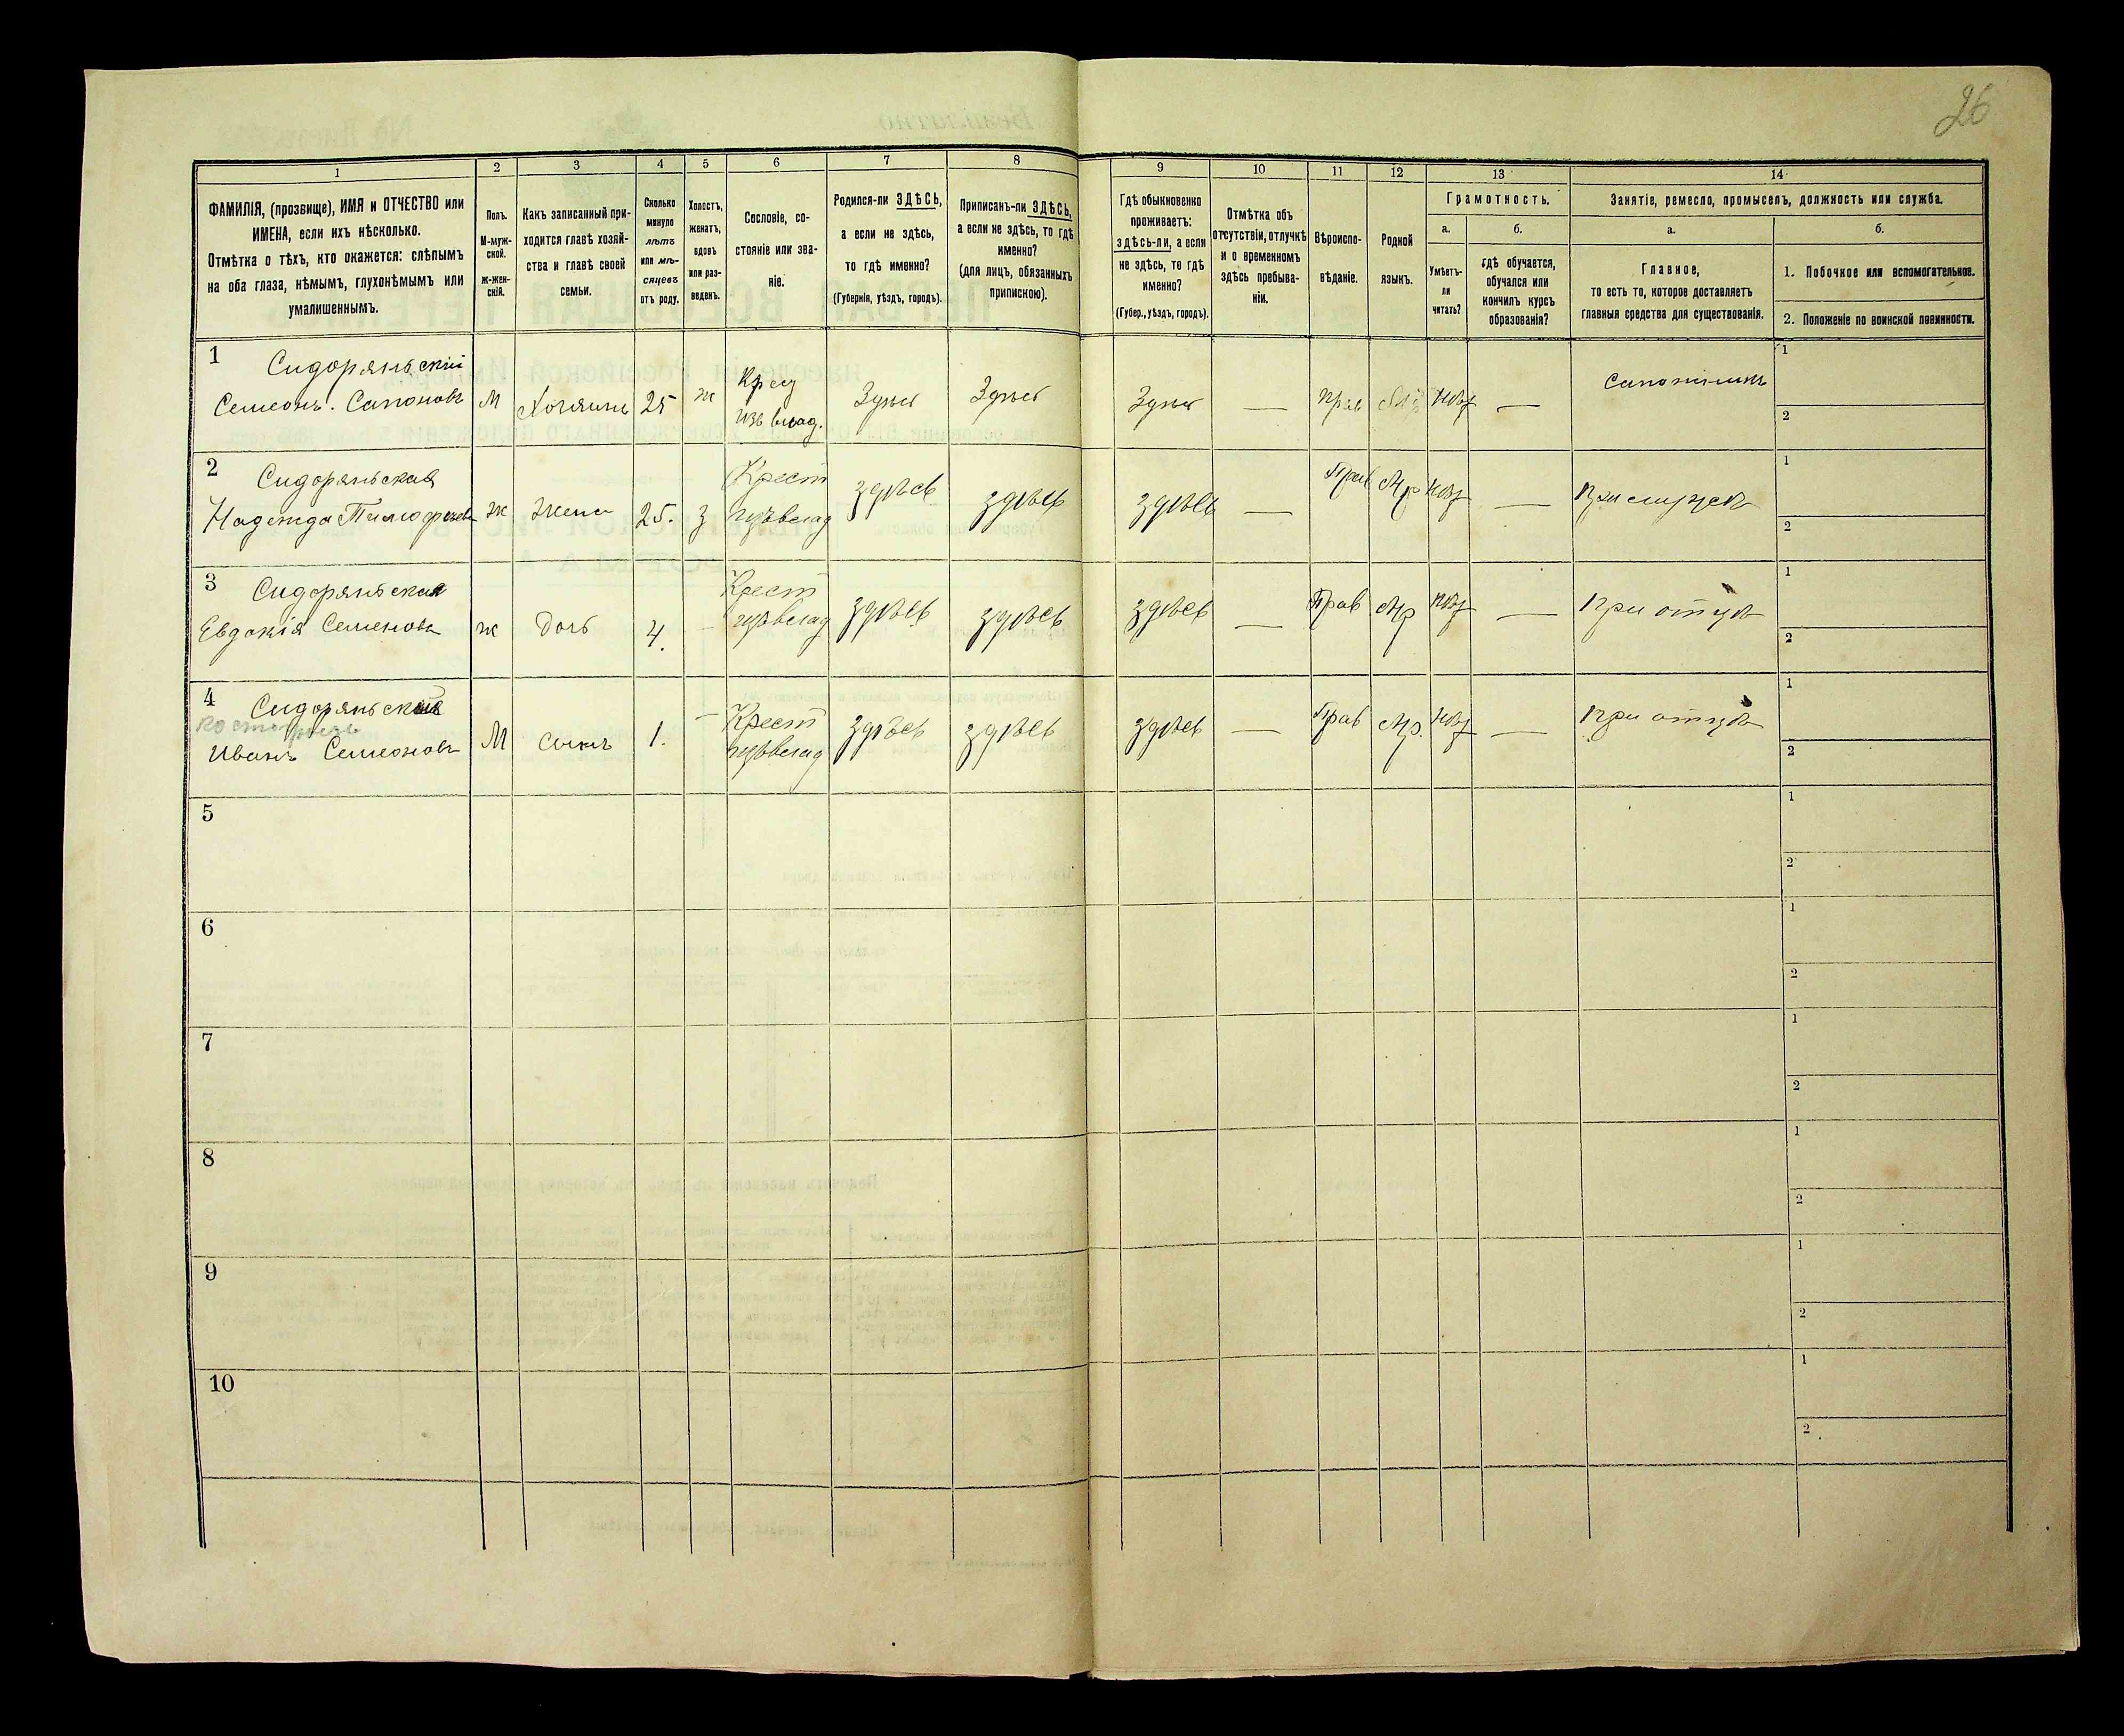 26
1
2
3
4
5
6
7
8
9
10
11
12
13
14
ФАМИЛІЯ, (прозвище), ИМЯ и ОТЧЕСТВО или
ИМЕНА, если ихъ нѣсколько.
Отмѣтка о тѣхъ, кто окажется: слѣпымъ
на оба глаза, нѣмымъ, глухонѣмымъ или
умалишеннымъ.
Полъ.
М-муж-
ской.
ж-жен-
скій.
Какъ записанный при-
ходится главѣ хозяй-
ства и главѣ своей
семьи.
Сколько
минуло
лѣтъ
или мѣ-
сяцевъ
отъ роду.
Холостъ,
женатъ,
вдовъ
или раз-
веденъ.
Сословіе, со-
стояніе или зва-
ніе.
Родился-ли ЗДѢСЬ,
а если не здѣсь,
то гдѣ именно?
(Губернія, уѣздъ, городъ).
Приписанъ-ли ЗДѢСЬ,
а если не здѣсь, то гдѣ
именно?
(для лицъ, обязанныхъ
припискою).
Гдѣ обыкновенно
проживаетъ:
здѣсь-ли, а если
не здѣсь, то гдѣ
именно?
(Губер., уѣздъ, городъ).
Отмѣтка объ
отсутствіи, отлучкѣ
и о временномъ
здѣсь пребыва-
ніи.
Вѣроиспо-
вѣданіе.
Родной
языкъ.
Грамотность.
а.
Умѣетъ-
ли
читать?
б.
гдѣ обучается,
обучался или
кончилъ курсъ
образованія?
Занятіе, ремесло, промыселъ, должность или служба.
а.
Главное,
то есть то, которое доставляетъ
главныя средства для существованія.
б.
1. Побочное или вспомогательное.
2. Положеніе по воинской повинности.
1 Сидоряньскій
Семеонъ. Сапоновъ
М
Хозяинъ
25
ж
Крест
изъ влад.
Здѣсь
Здѣсь
Здѣсь
—
Прав
Нѣт
—
Сапожникъ
1
2
2 Сидоряньская
Надежда
ж
Жена
25.
З
Крест
изъ влад
здѣсь
здѣсь
здѣсь
—
Прав
Мр
Нѣт
—
1
2
3 Сидоряньская
Евдокія Семенова
ж
Дочь
4.
—
Крест
изъ влад
здѣсь
здѣсь
здѣсь
—
Прав
Мр
Нѣт
—
при отцѣ
1
2
4 Сидоряньскій
Иванъ Семеоновъ
М
сынъ
1.
—
Крест
изъ влад
здѣсь
здѣсь
здѣсь
—
Прав
Мр.
Нѣт
—
при отцѣ
1
2
5
1
2
6
1
2
7
1
2
8
1
2
9
1
2
10
1
2